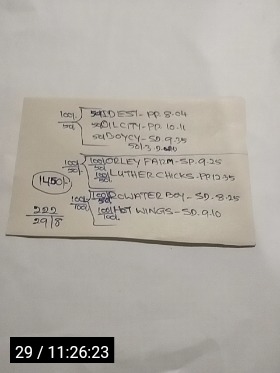 100/- 50/- 50/- IDESI - PR. 8.04
50/- OILCITY - PR. 10.11
50/- DOYCY - SD. 9.35
50/-
100/- 50/- 100/- 50/- ORLEY FARM - SP. 9.25
100/- 50/- LUTHER CHICKS - PR 12.35
1450/-
100/- 100/- ROWATER BOY - SD. 8.25
100/- 100/- HOT WINGS - SD. 9.10
222
29/8
29 / 11:26:23